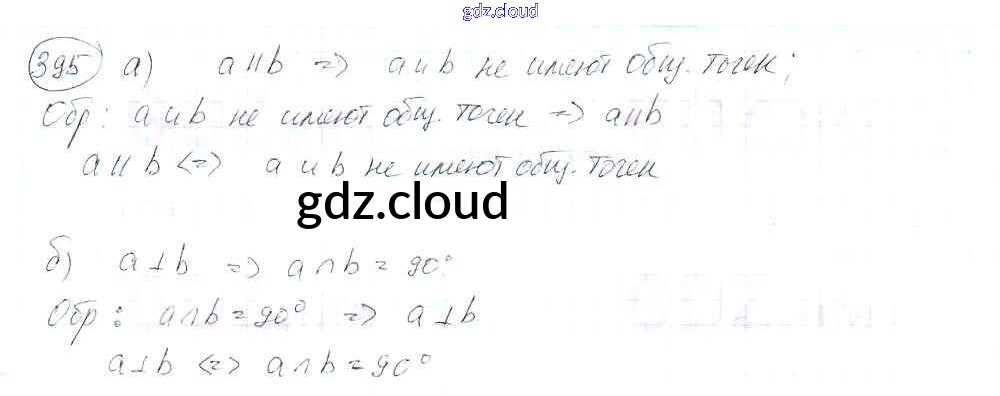 gdz.cloud
395 а) a || b => a и b не имеют общ. точек;
Обр: a и b не имеют общ. точек => a || b
a || b <=> a и b не имеют общ. точек
gdz.cloud
б) a ⊥ b => a ∩ b = 90°
Обр: a ∩ b = 90° => a ⊥ b
a ⊥ b <=> a ∩ b = 90°